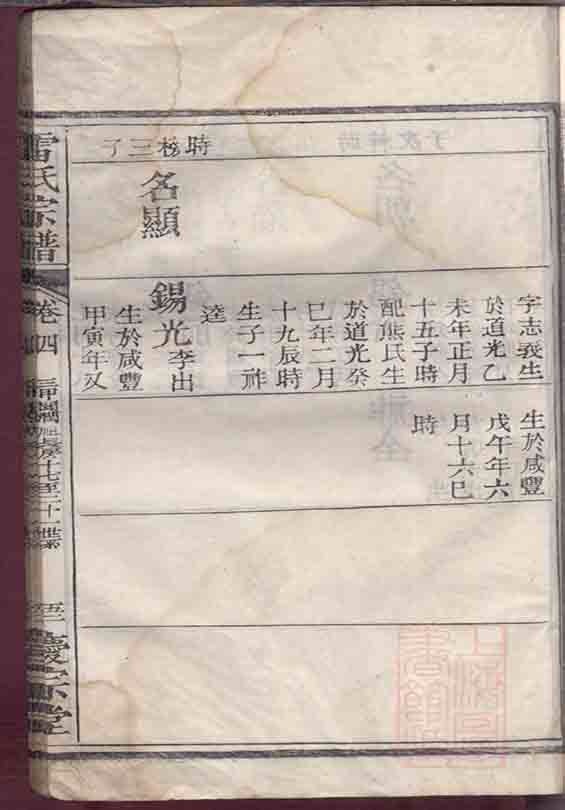 名顯
字志義生
於道光乙
未年正月
十五子時
配熊氏生
於道光癸
巳年二月
十九辰時
生子一祚
達
錫光李出
生於咸豐
甲寅年又
生於咸豐
戊午年六
月十六巳
時
雷氏宗譜
卷四